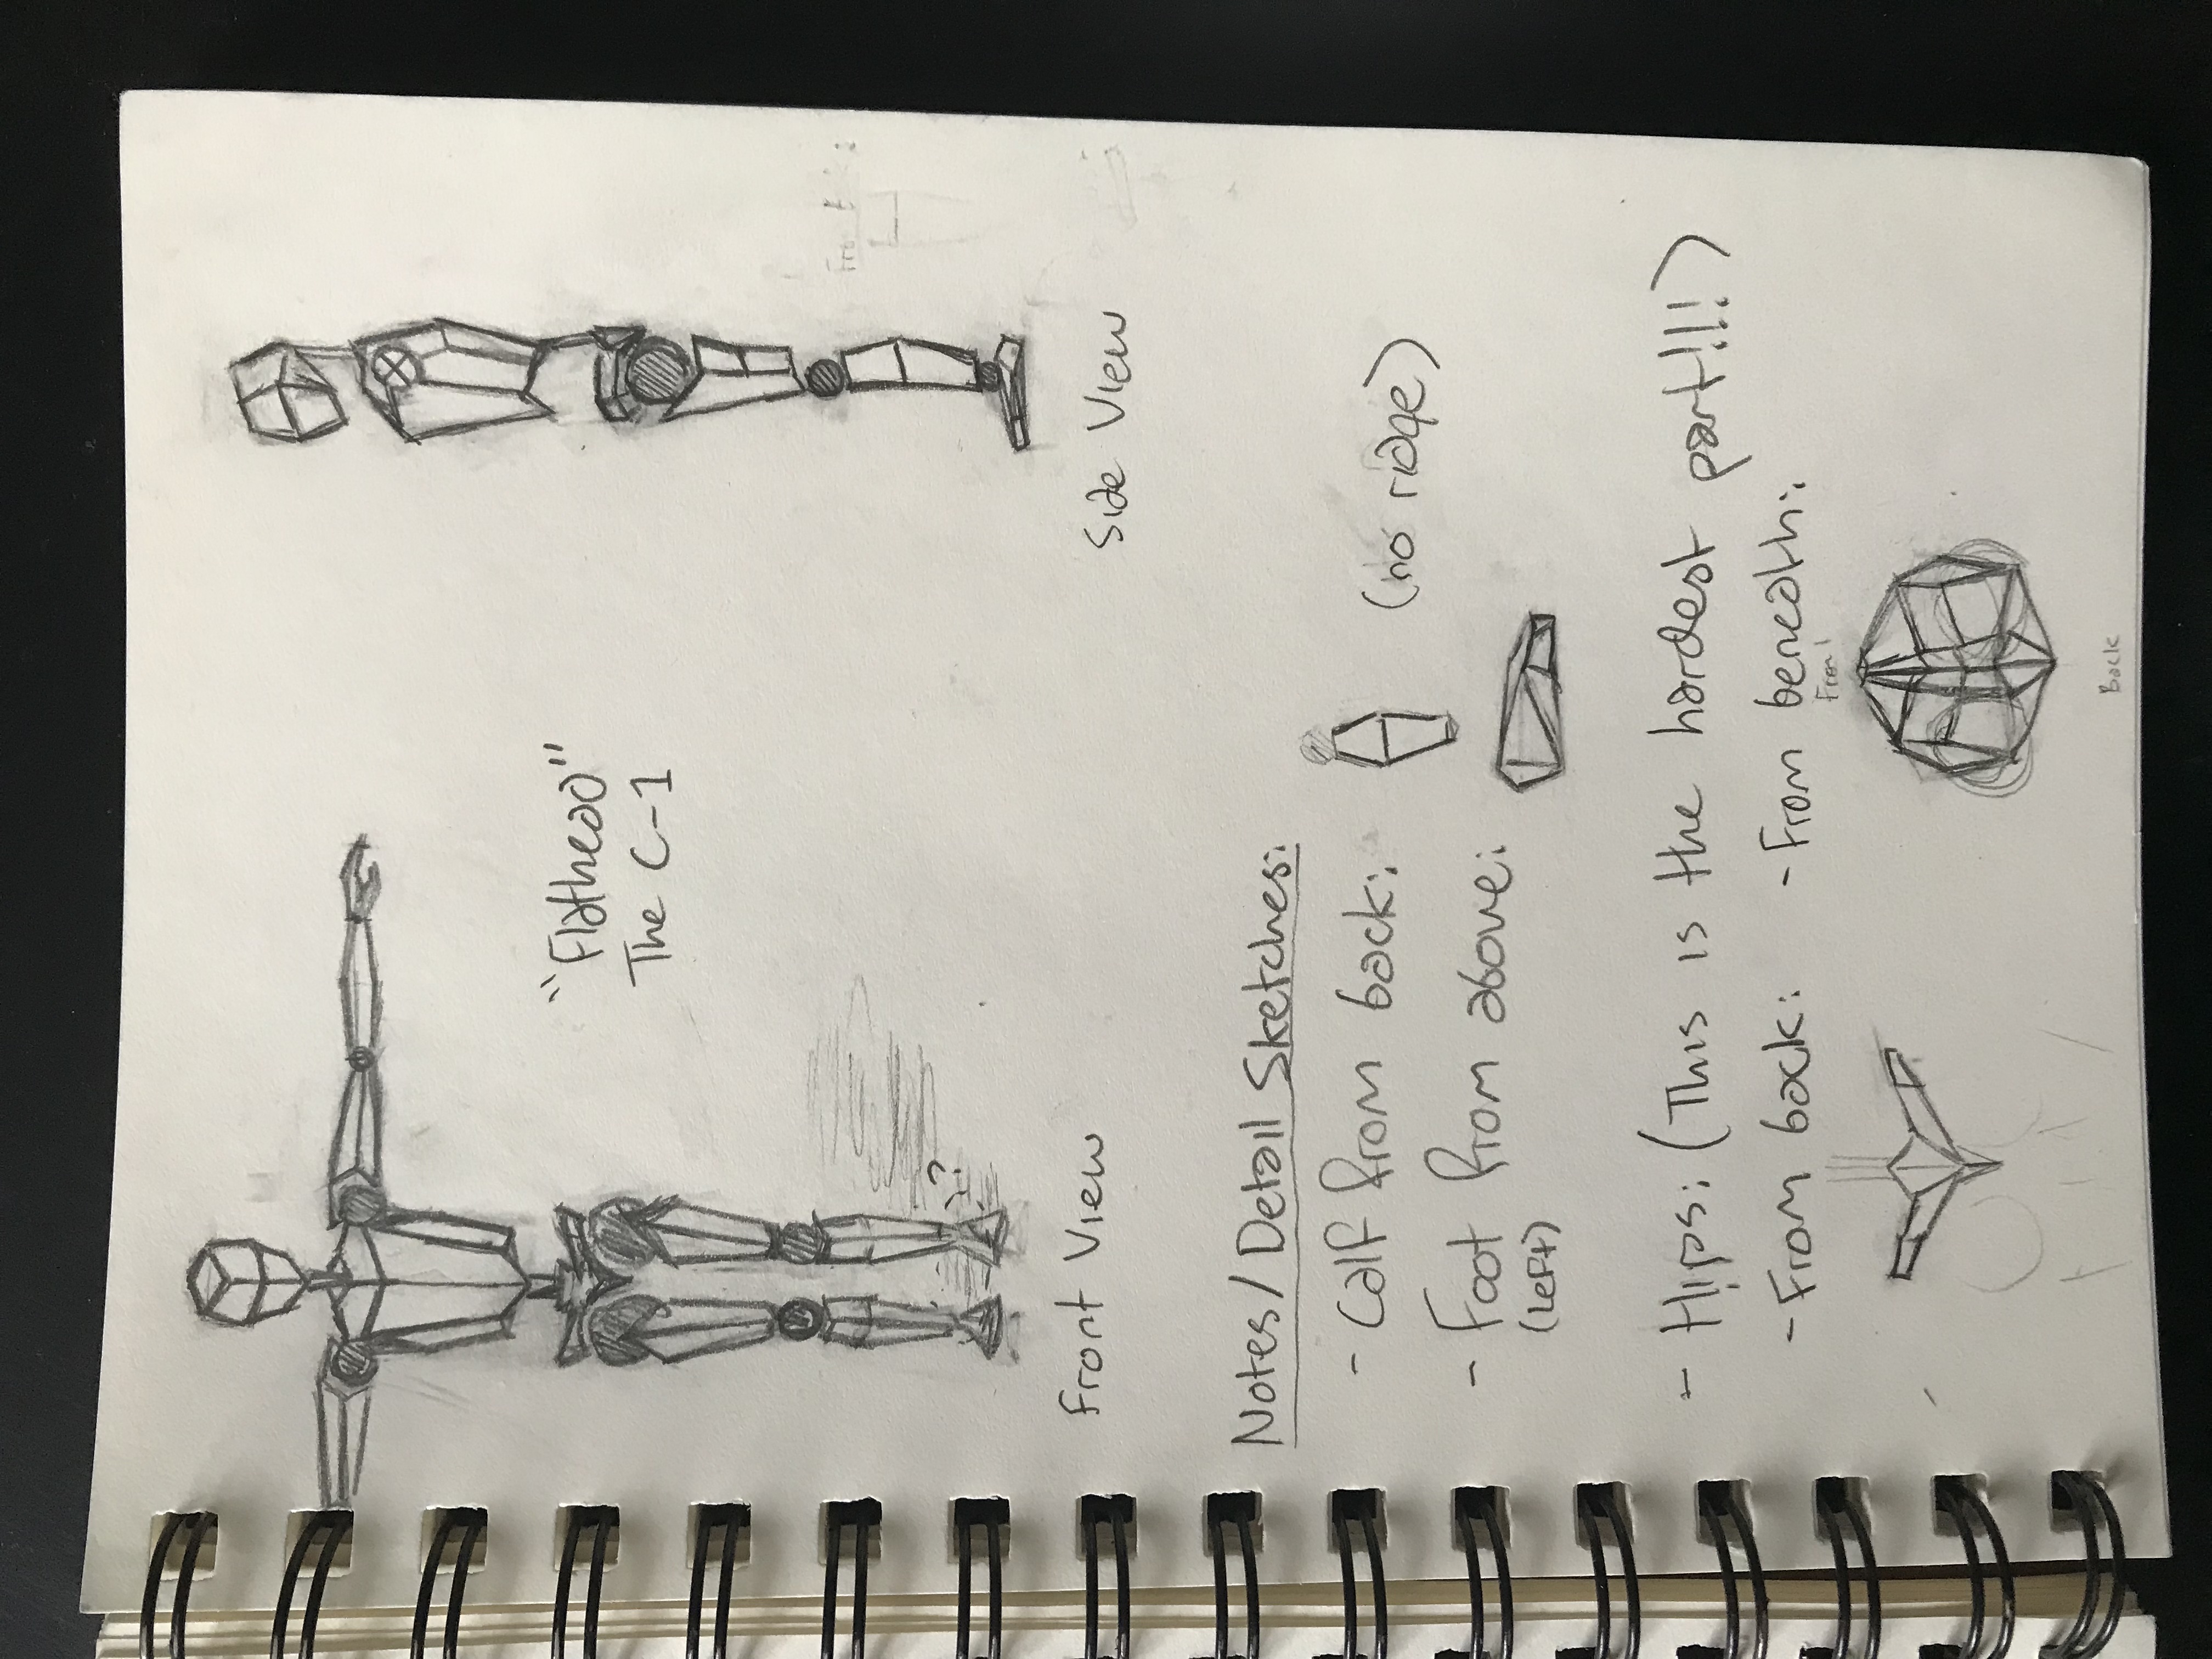 "Flathead"
The C-1
??
Front View
Side View
Notes/Detail Sketches:
- Calf from back: (no ridge)
- Foot from above:
(left)
- Hips: (This is the hardest part!!!)
- From back: - From beneath:
Front
Back